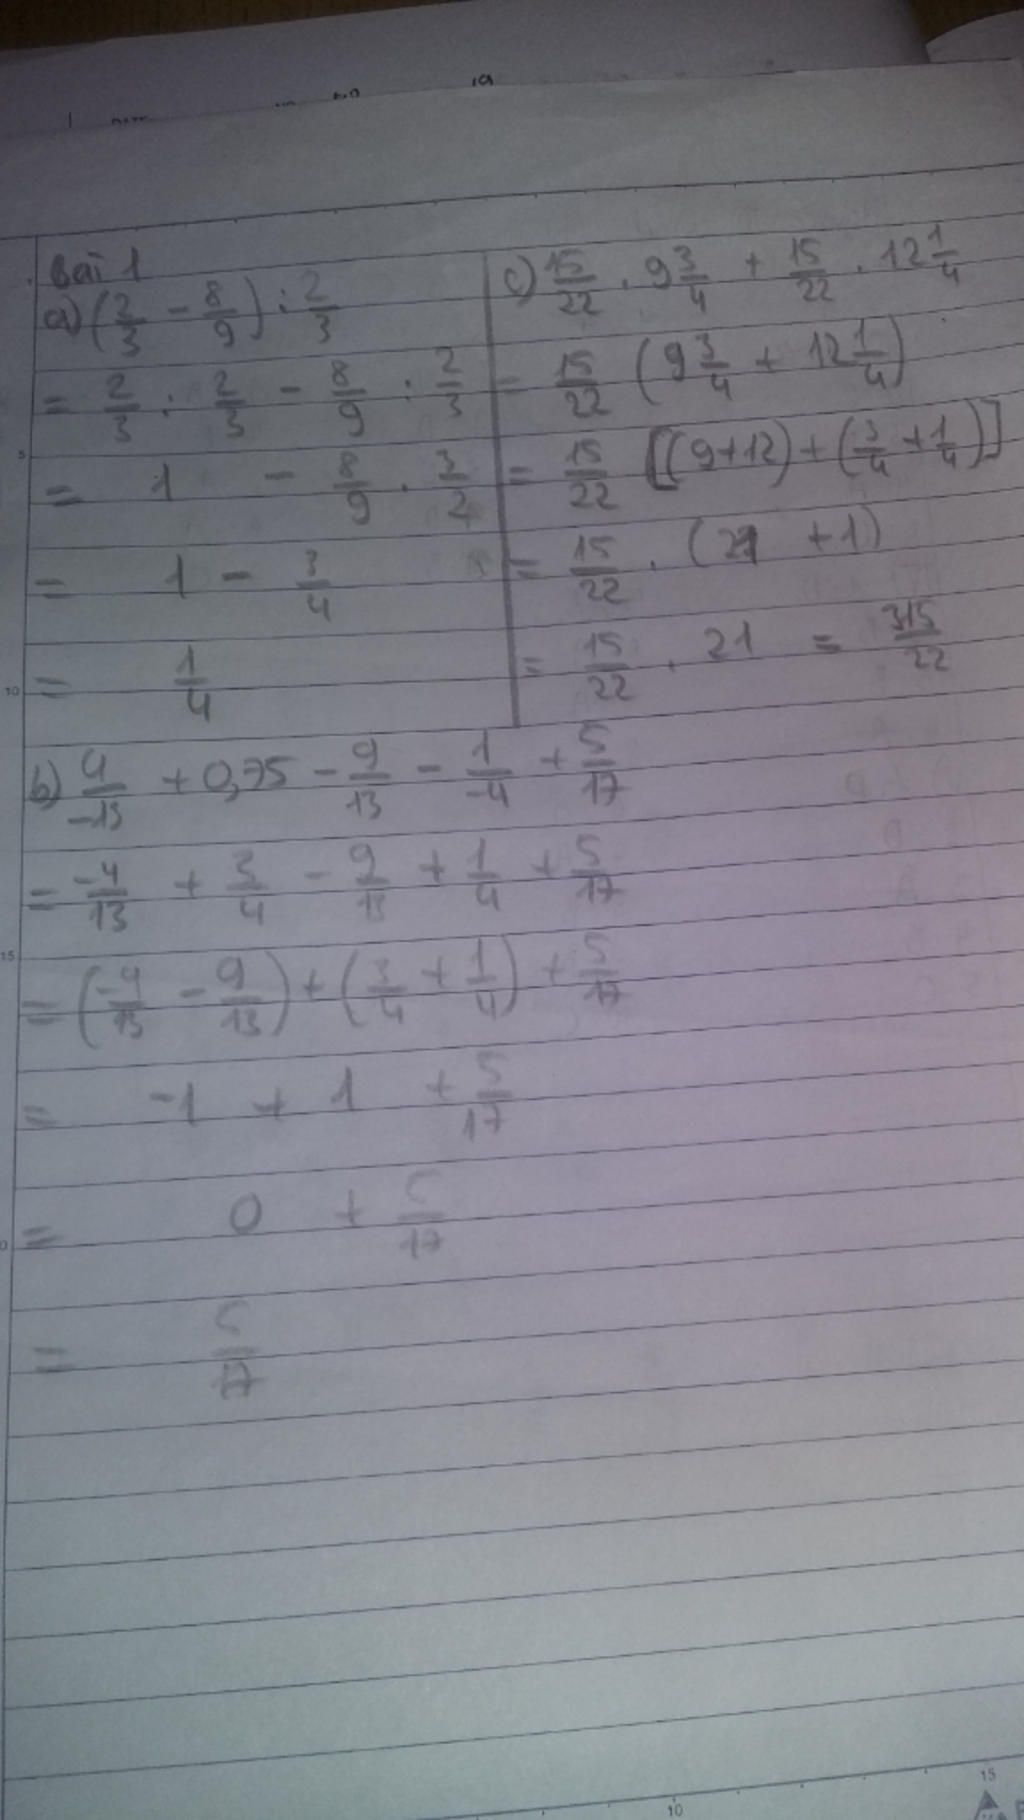 Bài 1
a) (2/3 - 8/9) : 2/3
= 2/3 : 2/3 - 8/9 : 2/3
= 1 - 8/9 . 3/2
= 1 - 3/4
= 1/4
c) 15/22 . 9 3/4 + 15/22 . 12 1/4
= 15/22 (9 3/4 + 12 1/4)
= 15/22 [(9+12) + (3/4 + 1/4)]
= 15/22 . (21 + 1)
= 15/22 . 21 = 315/22
b) 4/-13 + 0,75 - 9/13 - 1/-4 + 5/17
= -4/13 + 3/4 - 9/13 + 1/4 + 5/17
= (-4/13 - 9/13) + (3/4 + 1/4) + 5/17
= -1 + 1 + 5/17
= 0 + 5/17
= 5/17
5
10
15
10
15